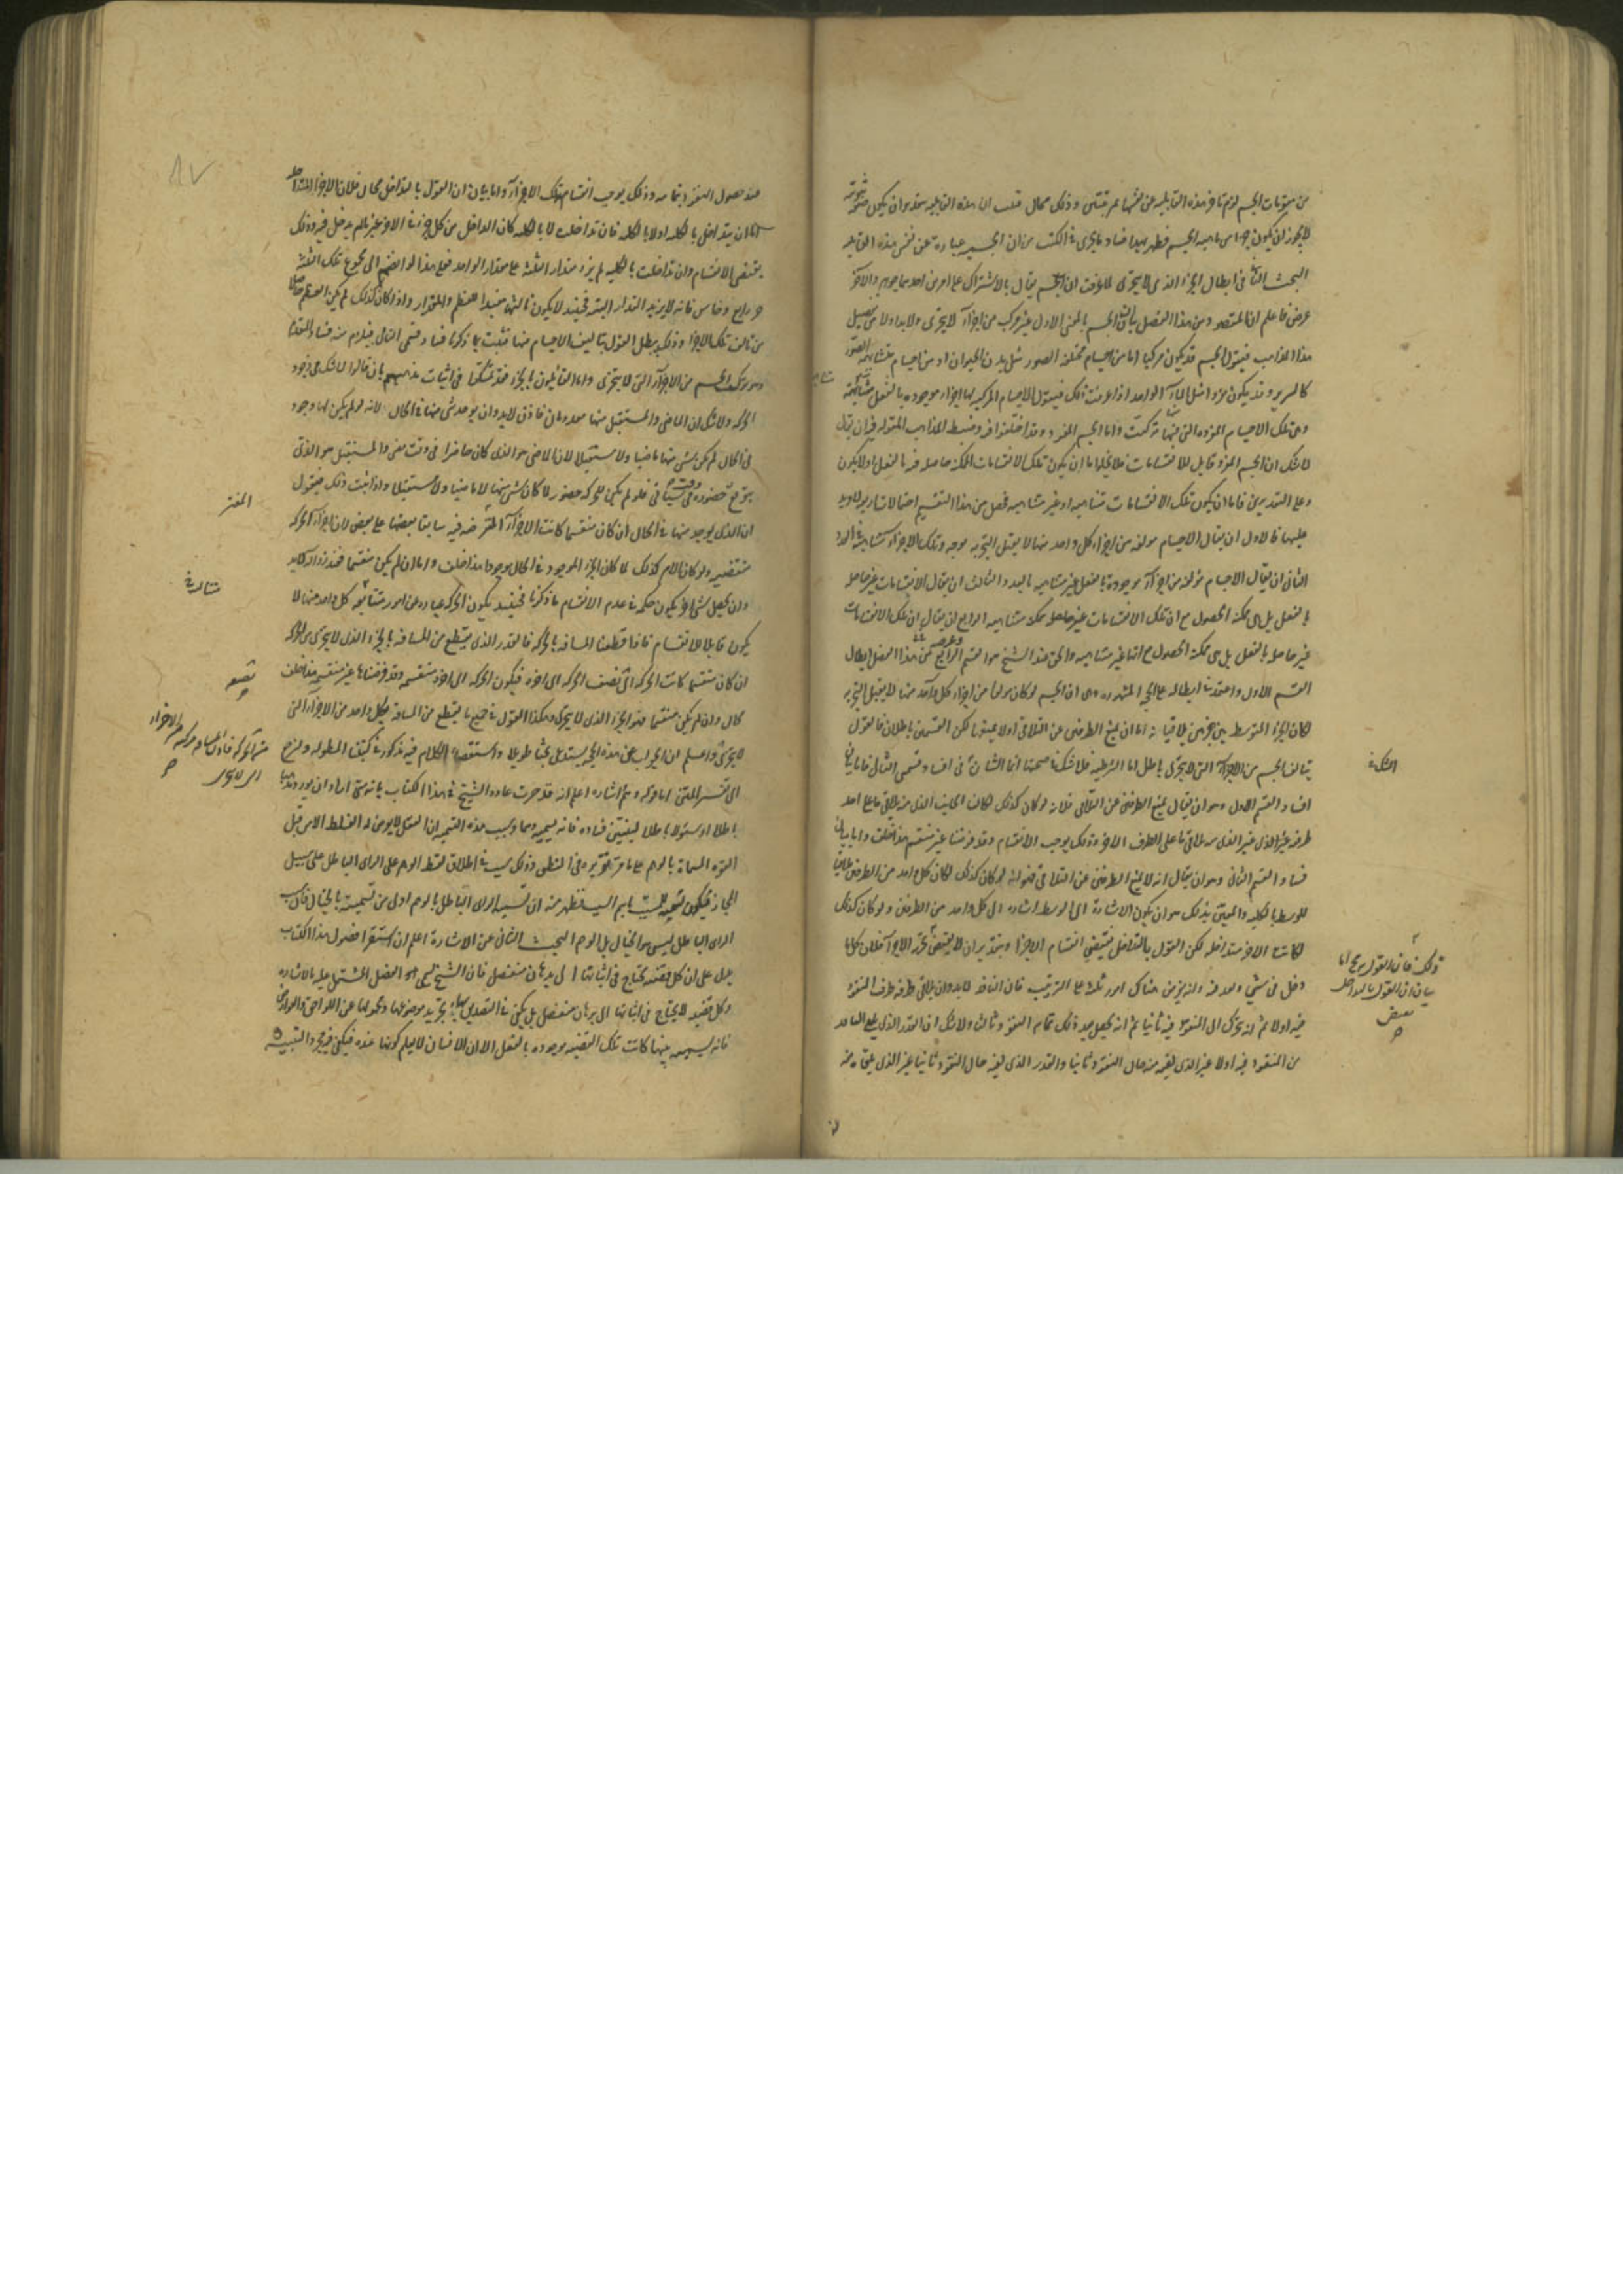 من مقومات الجسم لزم تاخر هذه القابلية عن نفسها بمرتبتين وذلك محال قلت ان هذه القابلية
لا يجوز ان يكون جزءا من ماهية الجسم فظهر بهذا فساد ما يجرى فى الكتب من ان الجسم عبارة عن نفس هذه القابلية
البحث الثانى فى ابطال الجزء الذى لا يتجزى لما عرفت ان الجسم يقال بالاشتراك على امرين احدهما جوهر والاخر
عرض فاعلم ان المقصود من هذا الفصل بيان ان الجسم بالمعنى الاول غير مركب من اجزاء لا يتجزى ولا بد اولا من تفصيل
هذا المذاهب فنقول الجسم قد يكون مركبا اما من اجسام مختلفة الصور مثل بدن الحيوان او من اجسام متشابهة الصور
كالسرير وقد يكون مفردا مثل الماء الواحد اذا عرفت ذلك فنقول الاجسام المركبة لها اجزاء موجودة بالفعل متناهية
وهى تلك الاجسام المفردة التى منها تركبت واما الجسم المفرد وقد اختلفوا فيه وضبط المذاهب المقولة فيه ان يقال
لا شك ان الجسم المفرد قابل للانقسامات فلا يخلو اما ان يكون تلك الانقسامات الممكنة حاصلة فيه بالفعل او لا يكون
وعلى التقديرين فاما ان يكون تلك الانقسامات متناهية او غير متناهية فحصل من هذا التقسيم احتمالات اربعة لا مزيد
عليها فالاول ان يقال الاجسام مولفة من اجزاء كل واحد منها لا يقبل التجزية بوجه وتلك الاجزاء متناهية العدد
الثانى ان يقال الاجسام مؤلفة من اجزاء موجودة بالفعل غير متناهية بالعدد والثالث ان يقال الانقسامات غير حاصلة
بالفعل بل هى ممكنة الحصول مع ان تلك الانقسامات غير حاصلة ممكنة متناهية الرابع ان يقال ان تلك الانقسامات
غير حاصلة بالفعل بل هى ممكنة الحصول مع انها غير متناهية والحق عند الشيخ هو القسم الرابع وغرضه من هذا الفصل ابطال
القسم الاول واعتمد فى ابطاله على الحجة المشهورة وهى ان الجسم لو كان مولفا من اجزاء كل واحد منها لا يقبل التجزية
لكان الجزء المتوسط بين جزئين يلاقيانه اما ان يمنع الطرفين عن التلاقى او لا يمنعهما لكن القسمين باطلان فالقول
بتالف الجسم من الاجزاء التى لا يتجزى باطل اما الشرطية فلا شك فى صحتها انما الشان فى افساد قسمى التالى فاما بيان
افساد القسم الاول وهو ان يقال يمنع الطرفين عن التلاقى فلانه لو كان كذلك لكان الجانب الذى منه يلاقى ما على احد
طرفيه غير الذى منه يلاقى ما على الطرف الاخر وذلك يوجب الانقسام وقد فرضنا غير منقسم هذا خلف واما بيان
فساد القسم الثانى وهو ان يقال انه لا يمنع الطرفين عن التلاقى فنقول انه لو كان كذلك لكان كل واحد من الطرفين ملاقيا
للوسط بالكلية والمعنى بذلك هو ان يكون الاشارة الى الوسط اشارة الى كل واحد من الطرفين ولو كان كذلك
لكانت الاجزاء متداخلة لكن القول بالتداخل يقتضى انقسام الاجزاء وبتقدير ان لا يقتضى تجزء الاجزاء فلان كلما
دخل فى شىء ونفذ فيه فانه يفرض هناك امور ثلثة على الترتيب فان النافذ لا بد وان يلاقى طرفه طرف المنفوذ
فيه اولا ثم انه يتحرك الى النفوذ فيه ثانيا ثم انه يحصل بعد ذلك تمام النفوذ ثالثا ولا شك ان القدر الذى يلقى النافذ
من المنفوذ فيه اولا غير الذى لقيه منه حال النفوذ ثانيا والقدر الذى لقيه حال النفوذ ثانيا غير الذى يلقاه منه
الشك فى
ذلك فان القول به محال اما
بيان ان القول بالتداخل
٨٧
عند حصول النفوذ بتمامه وذلك يوجب انقسام تلك الاجزاء واما بيان ان القول بالتداخل محال فلان الاجزاء المتداخلة
اما ان يتداخل بالكلية او لا بالكلية فان تداخلت لا بالكلية كان الداخل من كل جزء فى الاخر غير ما لم يدخل فيه وذلك
يقتضى الانقسام وان تداخلت بالكلية لم يزد مقدار الثلثة على مقدار الواحد فعلى هذا لو انضم الى مجموع تلك الثلثة
جزء رابع وخامس فانه لا يزيد المقدار البتة فحينئذ لا يكون تاليفها مفيدا للعظم والمقدار واذا كان كذلك لم يكن العظم حاصلا
من تالف تلك الاجزاء وذلك يبطل القول بتاليف الاجسام منها فثبت بما ذكرنا فساد قسمى التالى فيلزم منه فساد المقدم
وهو تركب الجسم من الاجزاء التى لا يتجزى واما القائلون بالجزء فقد تمسكوا فى اثبات مذهبهم بان قالوا لا شك فى وجود
الحركة ولا شك ان الماضى والمستقبل منها معدومان فاذن لا بد وان يوجد شى منها فى الحال لانه لو لم يكن لها وجود
فى الحال لم يكن شى منها ماضيا ولا مستقبلا لان الماضى هو الذى كان حاضرا فى وقت مضى والمستقبل هو الذى
يتوقع حضوره فى وقت سياتى فلو لم يكن للحركة حضور لما كان شى منها لا ماضيا ولا مستقبلا واذا ثبت ذلك فنقول
ان الذى يوجد منها فى الحال ان كان منقسما كانت الاجزاء المفترضة فيه سابقا بعضها على بعض لان اجزاء الحركة
منقضية ولو كان الامر كذلك لما كان الجزء الموجود فى الحال موجودا هذا خلف واما ان لم يكن منقسما فعند زواله لا بد
وان يحصل شى اخر يكون حكمه فى عدم الانقسام ما ذكرنا فحينئذ يكون الحركة عبارة عن امور متتابعة كل واحد منها لا
يكون قابلا للانقسام فاذا قطعنا المسافة بالحركة فالقدر الذى يقطع من المسافة بالجزء الذى لا يتجزى من الحركة
ان كان منقسما كانت الحركة الى نصفه الحركة الى اخره فيكون الحركة الى اخره منقسمة وقد فرضناها غير منقسمة هذا خلف
محال وان لم يكن منقسما فهو الجزء الذى لا يتجزى وهكذا القول فى جميع ما يقطع من المسافة بكل واحد من الاجزاء التى
لا يتجزى واعلم ان الجواب عن هذه الحجة يستدعى بحثا طويلا واستقصاء الكلام فيه مذكور فى كتبنا المطولة ولنرجع
الى تفسير المتن اما قوله وهم واشارة اعلم انه قد جرت عادة الشيخ فى هذا الكتاب بانه متى اراد ان يورد مذهبا
باطلا او سئولا باطلا ليبين فساده فانه يسميه وهما وسبب هذه التسمية ان العقل لا يعرض له الغلط الا من قبل
القوة المسماة بالوهم على ما مر تقريره فى المنطق وذلك سبب فى اطلاق لفظ الوهم على الراى الباطل على سبيل
المجاز فيكون تسمية للمسبب باسم السبب فظهر منه ان تسمية الراى الباطل بالوهم اولى من تسميته بالخيال فان سبب
الراى الباطل ليس هو الخيال بل الوهم البحث الثانى عن الاشارة اعلم ان استقراء فصول هذا الكتاب
يدل على ان كل قضية يحتاج فى اثباتها الى برهان منفصل فان الشيخ يسمى الفصل المشتمل عليه بالاشارة
وكل قضية لا يحتاج فى اثباتها الى برهان منفصل بل يكفى فى التصديق بها تجريد موضوعها ومحمولها عن اللواحق والعوارض
فانه يسميه تنبيها كانت تلك القضية موجودة بالفعل الا ان الانسان لا يعلم كونها عنده فيكفى فيه مجرد التنبيه
المفتر